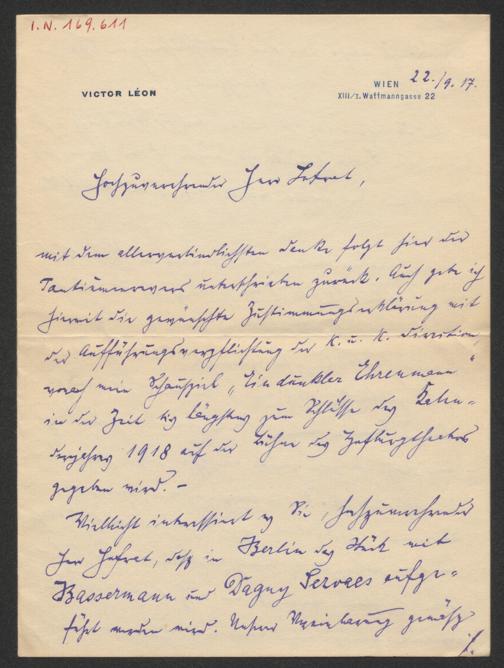 I.N. 169.611
VICTOR LÉON
WIEN 22./9.17.
XIII/I. Wattmanngasse 22
Hochzuverehrender Herr Hofrat,
mit dem allerverbindlichsten Danke folgt hier der
Tantièmenrevers unterschrieben zurück. Auch gebe ich
hiermit die gewünschte Zustimmungserklärung mit
der Aufführungsverpflichtung der K. u. K. Direktion,
wonach mein Schauspiel „Ein dunkler Ehrenmann"
in der Zeit bis längstens zum Schlusse des Kalen-
derjahres 1918 auf der Bühne des Hofburgtheaters
gegeben wird. –
Vielleicht interessiert es Sie, hochzuverehrender
Herr Hofrat, dass in Berlin das Stück mit
Bassermann und Dagny Servaes aufge-
führt werden wird. Unserer Vereinbarung gemäss